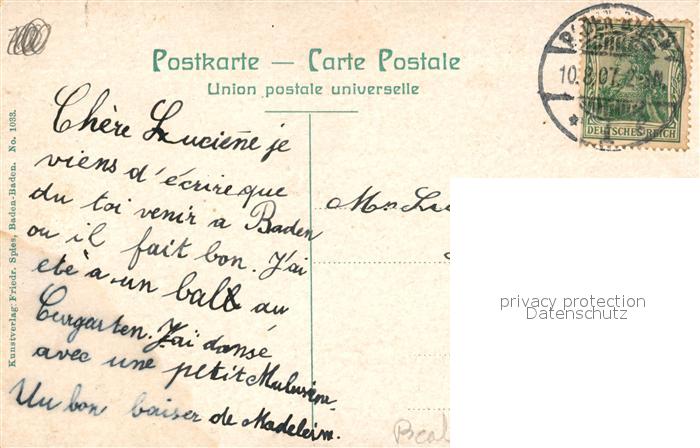 Postkarte — Carte Postale
Union postale universelle
BADEN-BADEN
10.8.07.
DEUTSCHES REICH
Chère Luciene je
viens d'écrire que
du toi venir a Baden
ou il fait bon. J'ai
eté a un ball au
Curgarten. J'ai dansé
avec une petit
Un bon baiser de Madelein.
Kunstverlag Friedr. Spies, Baden-Baden. No. 1033.
privacy protection
Datenschutz